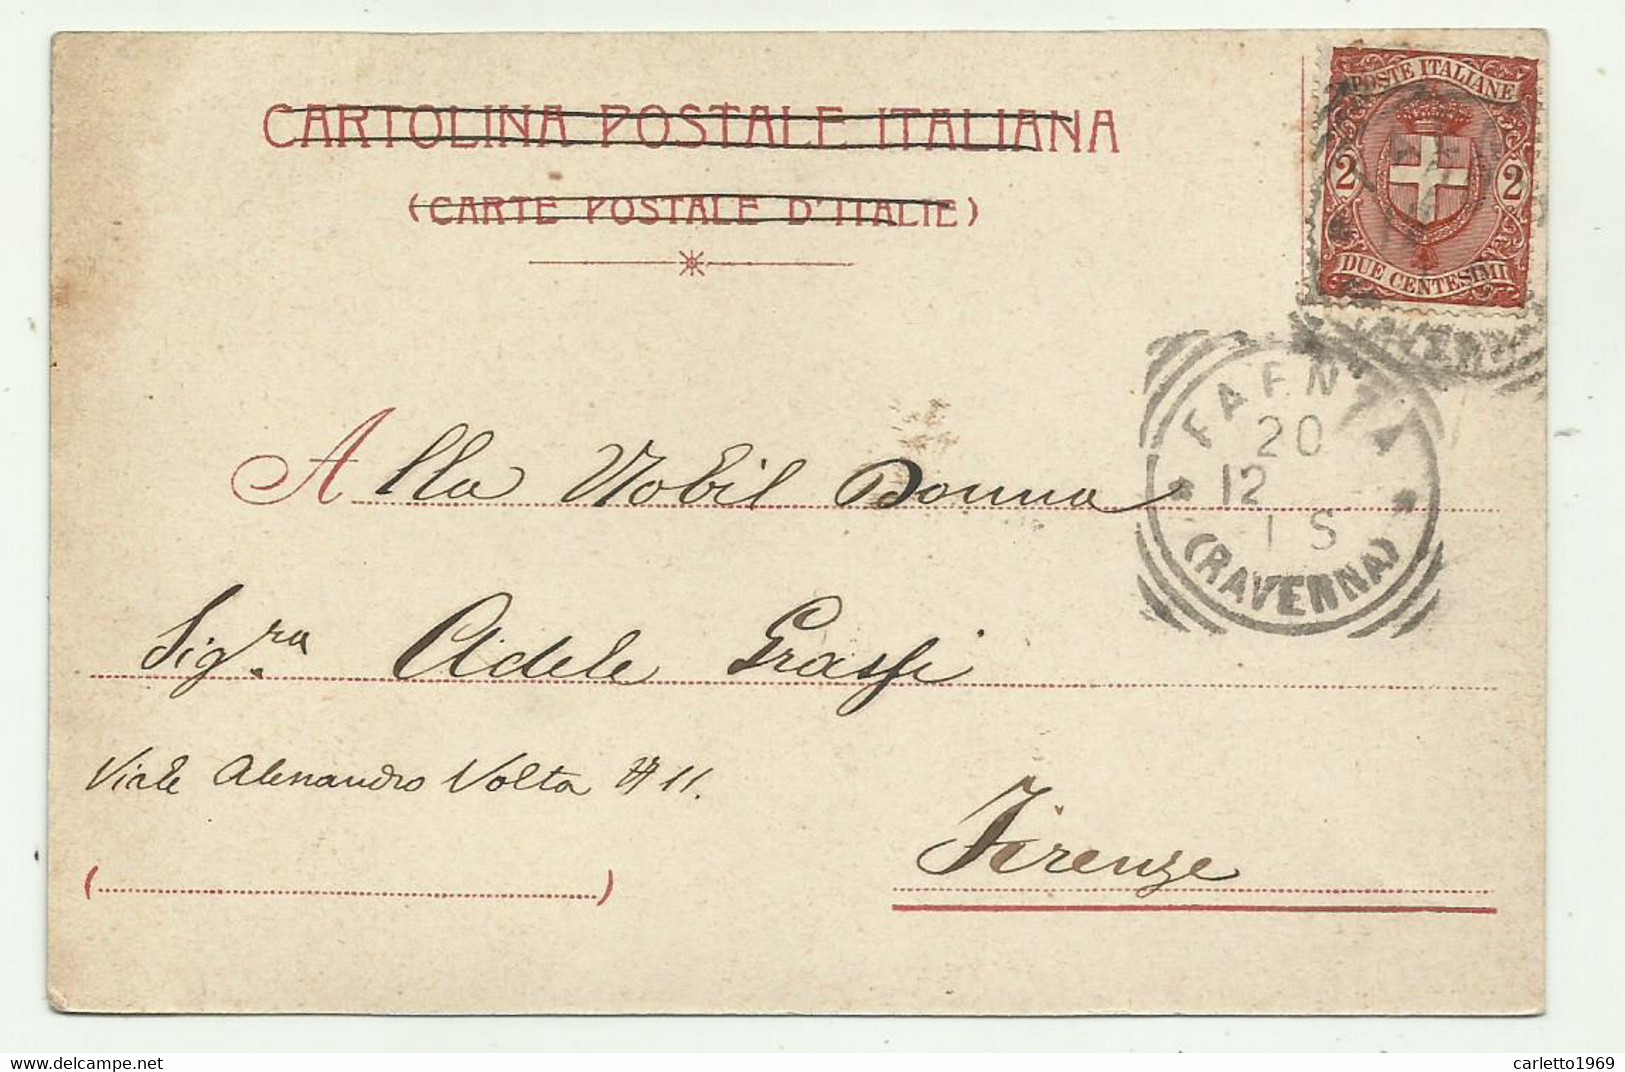 CARTOLINA POSTALE ITALIANA
(CARTE POSTALE D'ITALIE)
POSTE ITALIANE
2 2
DUE CENTESIMI
FAENZA
20
12
1 S
(RAVENNA)
Alla Nobil Donna
Sig.ra Adele Grassi
Viale Alessandro Volta # 11.
Firenze
(
)
delcampe.net
carletto1969